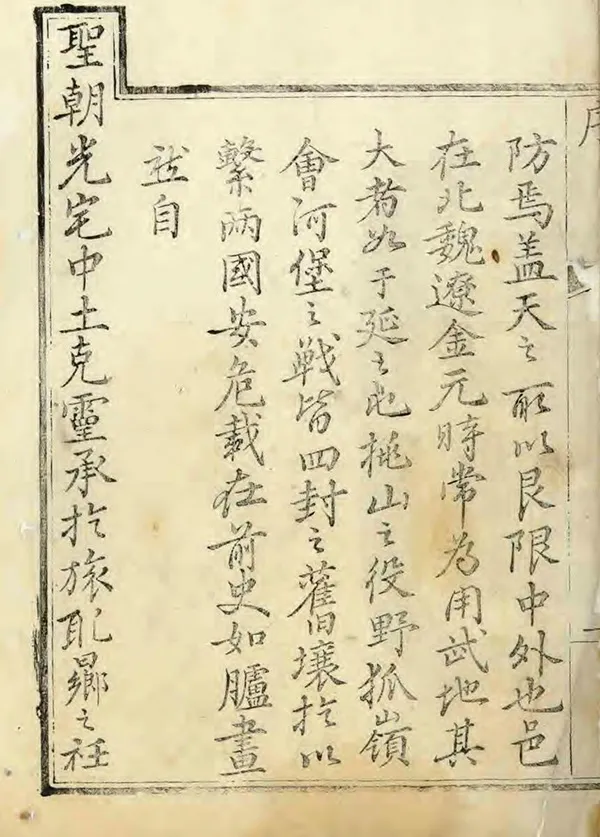 序
防焉盖天之所以艮限中外也邑
在北魏遼金元時常為用武地其
大者如于延之北桃山之役野狐嶺
會河堡之戰皆四封之舊壤於以
繫兩國安危載在前史如臚畫
玆自
聖朝光宅中土克靈承於旅耴鄉之祍
二